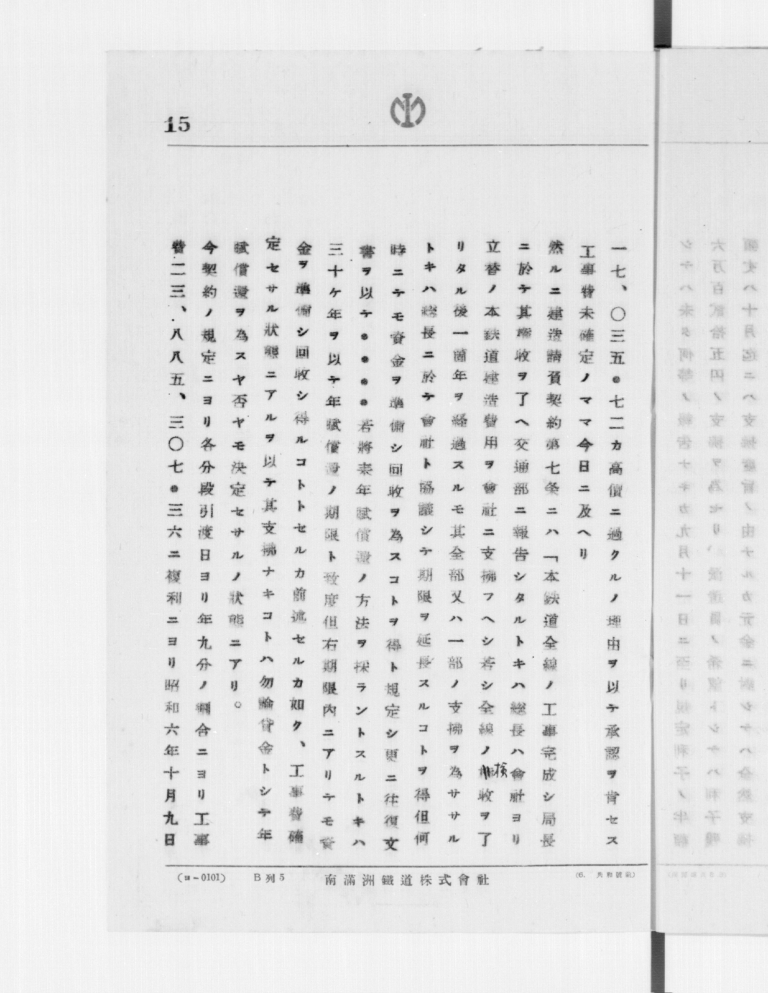 15
一七、〇三五・七二カ高價ニ過クルノ理由ヲ以テ承認ヲ肯セス
工事費未確定ノママ今日ニ及ヘリ
然ルニ建造請負契約第七条ニハ「本鉄道全線ノ工事完成シ局長
ニ於テ其驗收ヲ了ヘ交通部ニ報告シタルトキハ総長ハ會社ヨリ
立替ノ本鉄道建造費用ヲ會社ニ支拂フヘシ若シ全線ノ檢收ヲ了
リタル後一箇年ヲ経過スルモ其全部又ハ一部ノ支拂ヲ為ササル
トキハ総長ニ於テ會社ト協議シテ期限ヲ延長スルコトヲ得但何
時ニテモ資金ヲ準備シ回收ヲ為スコトヲ得ト規定シ更ニ往復文
書ヲ以テ・・・・若將来年賦償還ノ方法ヲ採ラントスルトキハ
三十ケ年ヲ以テ年賦償還ノ期限ト致度但右期限内ニアリテモ資
金ヲ準備シ回收シ得ルコトトセルカ前流セルカ如ク、工事費確
定セサル狀態ニアルヲ以テ其支拂ナキコトハ勿論貸金トシテ年
賦償還ヲ為スヤ否ヤモ決定セサルノ狀態ニアリ。
今契約ノ規定ニヨリ各分段引渡日ヨリ年九分ノ割合ニヨリ工事
費二三、八八五、三〇七・三六ニ複利ニヨリ昭和六年十月九日
(ヨ-0101) B列5 南滿洲鐵道株式會社